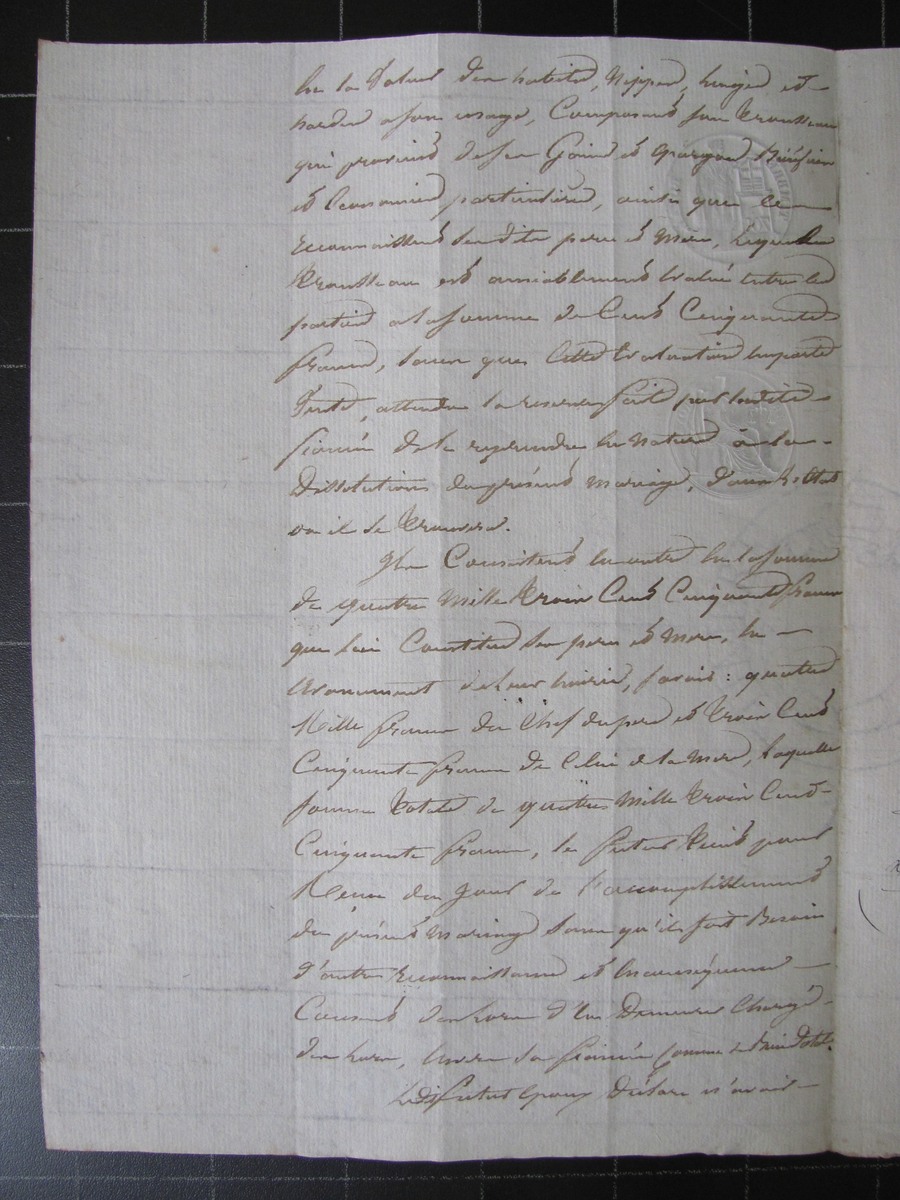 En la Valeur des habits, Nippes, linges et
hardes a son usage, Composant son Trousseau
qui provient de ses Gains et épargnes
et Economies particulières, ainsi que le
reconnaissent sesdits pere et Mere, Lequel
Trousseau est amiablement Evalué entre les
parties a la somme de Cent Cinquante
francs, sans que Cette Evaluation Emporte
Vente, attendu la reserve faite par ladite
fiancée de le reprendre En Nature à la
Dissolution du présent Mariage, dans l'Etat
ou il se trouvera.
Ils Consistent Ensuite En la somme
de quatre Mille trois Cent Cinquante francs
que lui Constitue Ses pere et Mere, En
avancement de leur hoirie, savoir : quatre
Mille francs du Chef du pere et trois Cent
Cinquante francs de Celui de la Mere, laquelle
somme totale de quatre Mille trois Cent
Cinquante francs, le futur tient pour
Reçue du jour de l'accomplissement
du présent Mariage sans qu'il soit Besoin
d'autre reconnaissance et En Conséquence
Consent des lors d'En Demeurer Chargé
des lors, Envers Sa fiancée Comme de Bien Dotal.
Ledit futur Epoux déclare n'avoir